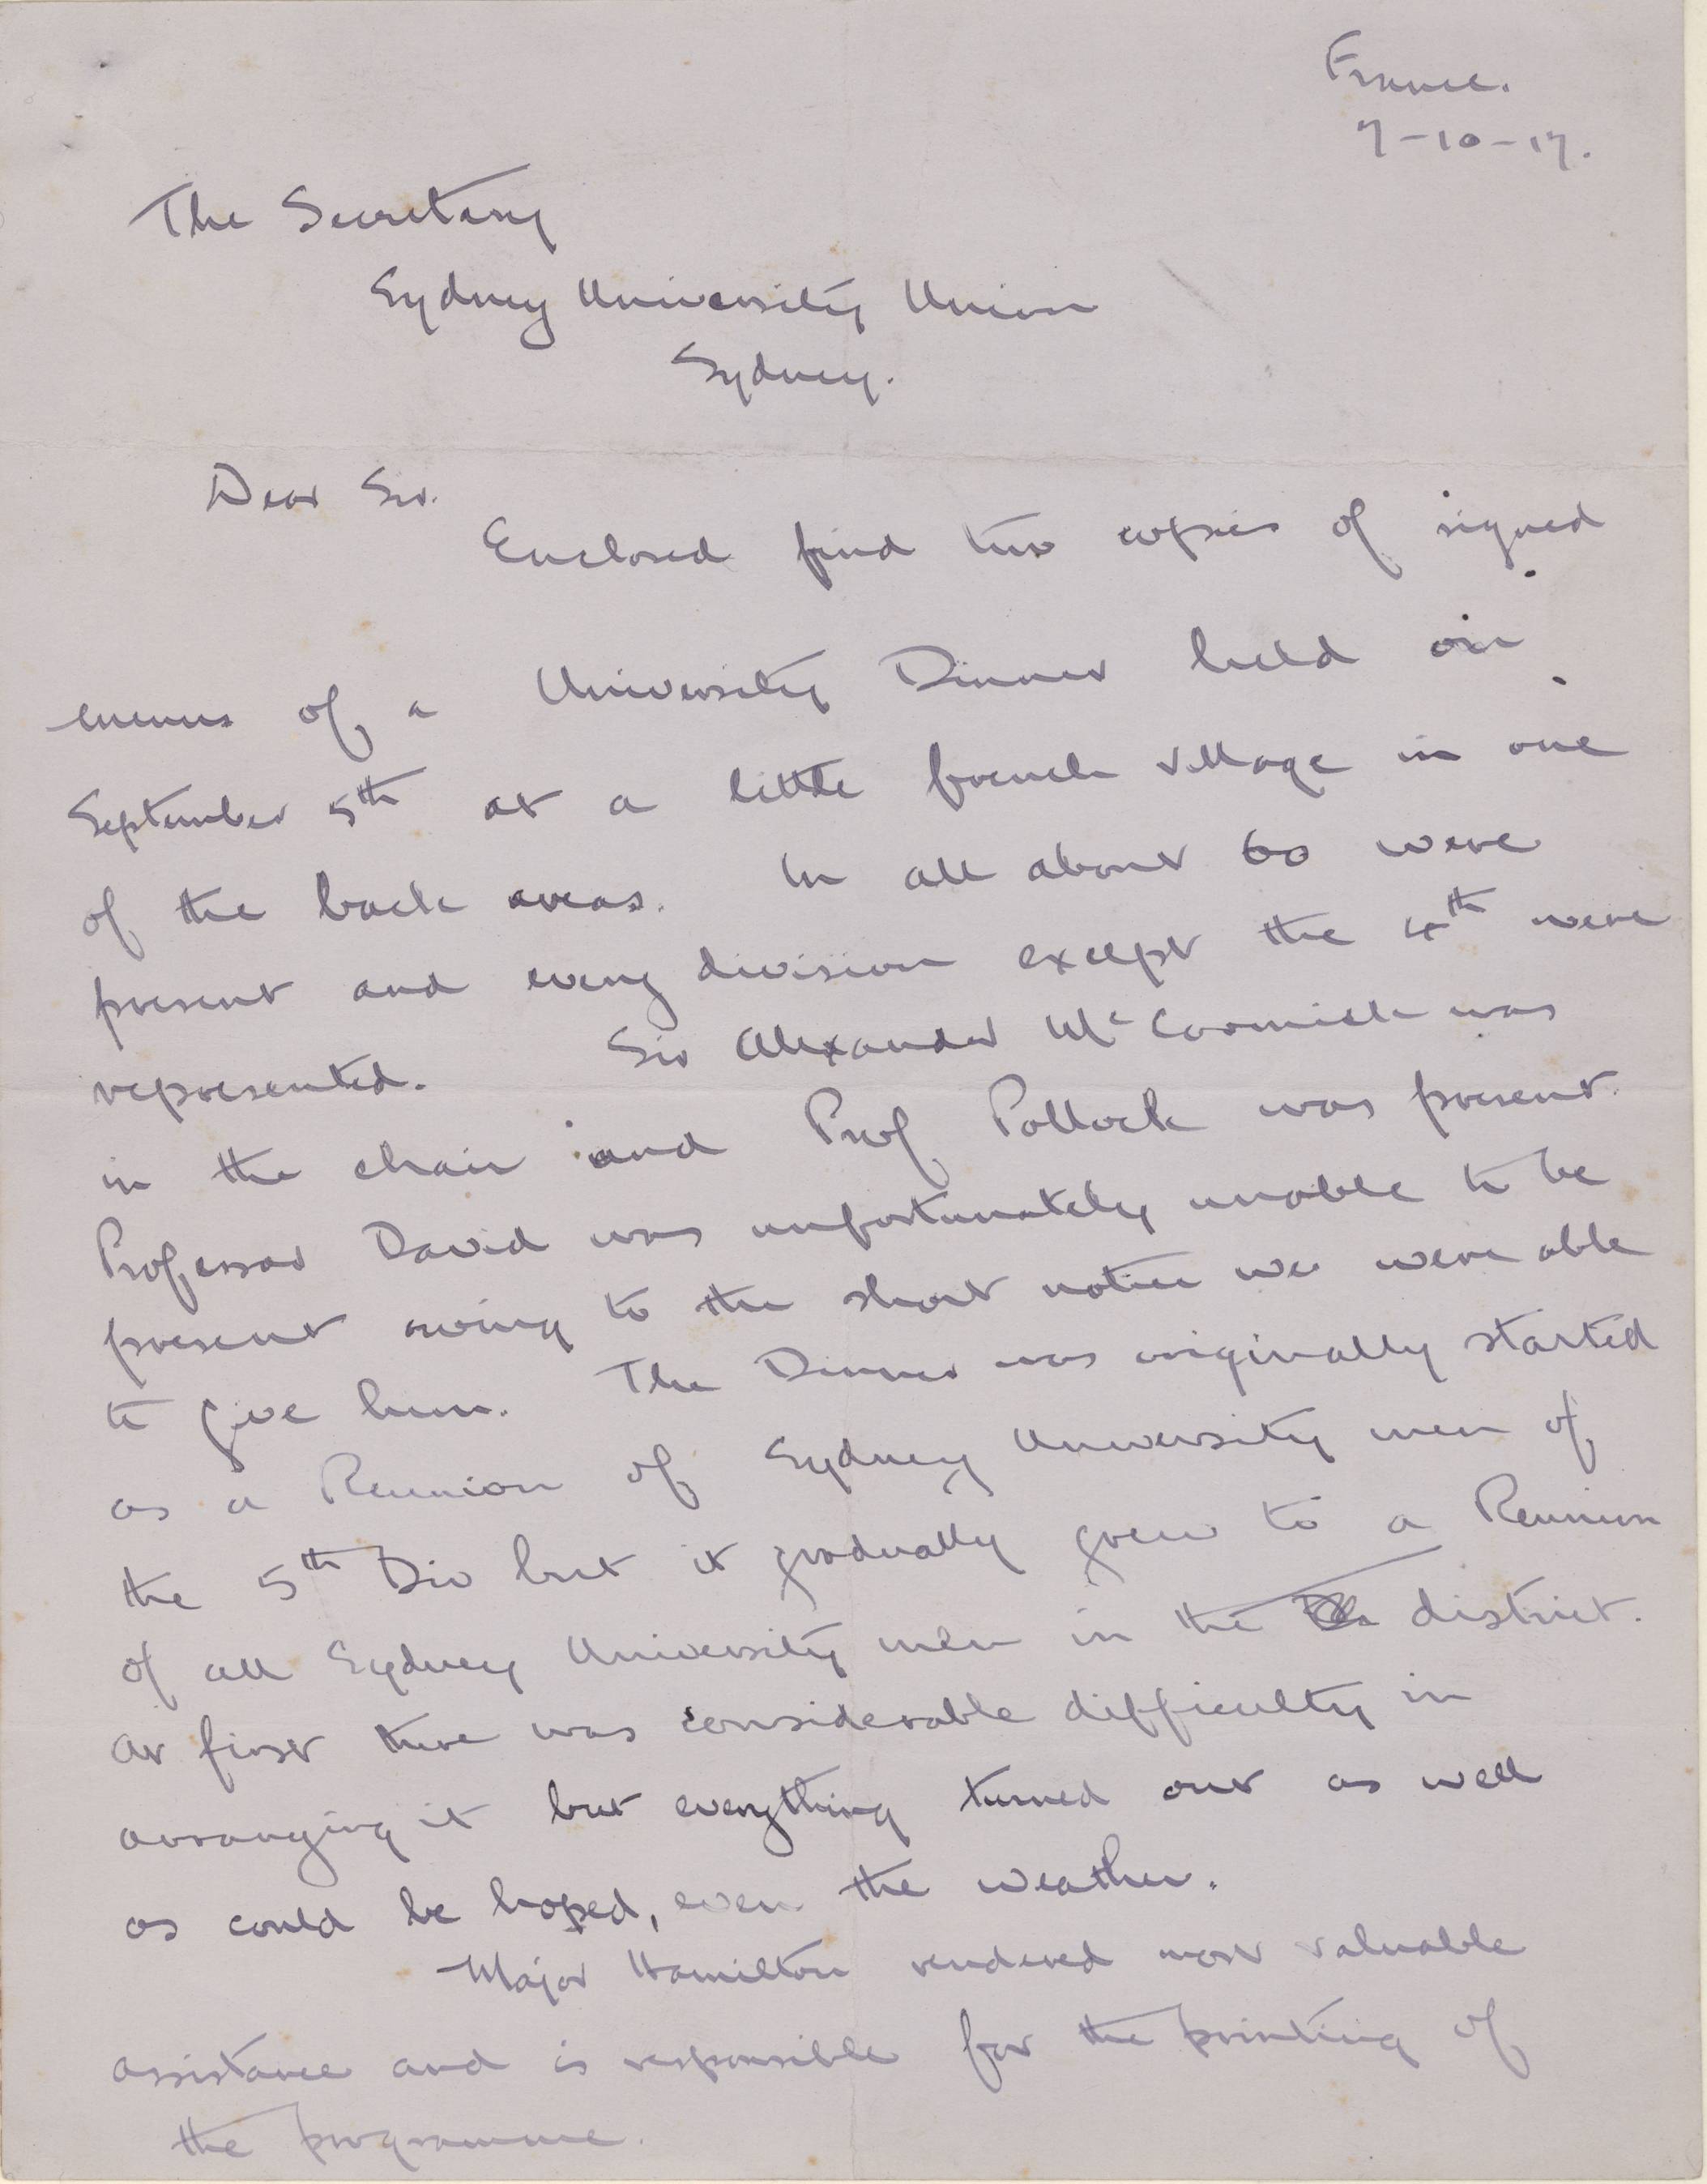 France.
7-10-17.
The Secretary
Sydney University Union
Sydney.
Dear Sir.
Enclosed find two copies of signed
menus of a University Dinner held on
September 5th at a little french village in one
of the back areas. In all about 60 were
present and every division except the 4th were
represented. Sir Alexander McCormick was
in the chair and Prof Pollock was present.
Professor David was unfortunately unable to be
present owing to the short notice we were able
to give him. The Dinner was originally started
as a Reunion of Sydney University men of
the 5th Div but it gradually grew to a Reunion
of all Sydney University men in the district.
At first there was considerable difficulty in
arranging it but everything turned out as well
as could be hoped, even the weather.
Major Hamilton rendered most valuable
assistance and is responsible for the printing of
the programme.